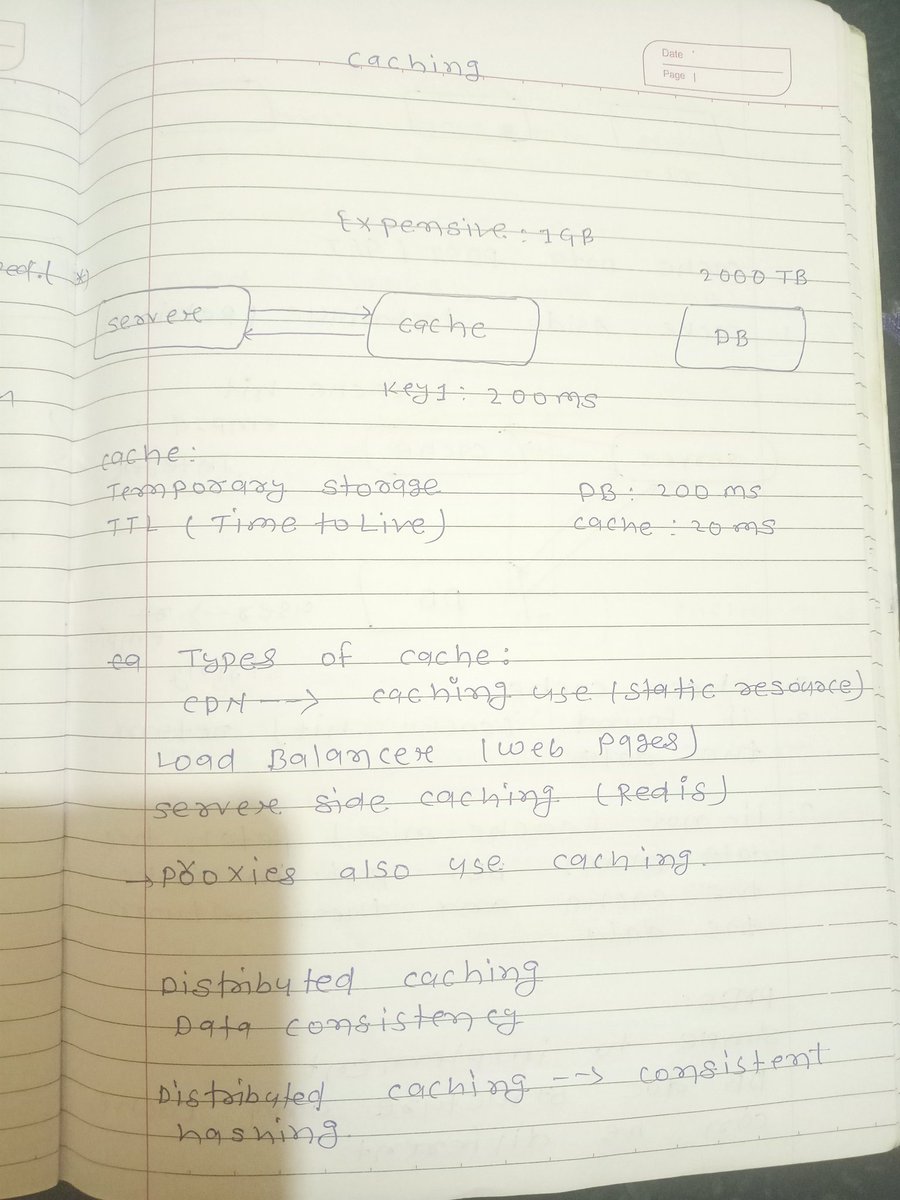 Caching
Date
Page
Expensive: 1GB
2000 TB
servere
cache
DB
Key1: 200ms
cache:
Temporary storage
DB: 200 ms
TTL (Time to Live)
cache: 20 ms
eg Types of cache:
CDN --> caching use (static resource)
Load Balancere (web pages)
servere side caching (Redis)
→ Proxies also use caching.
Distributed caching
Data consistency
Distributed caching --> consistent
hashing.